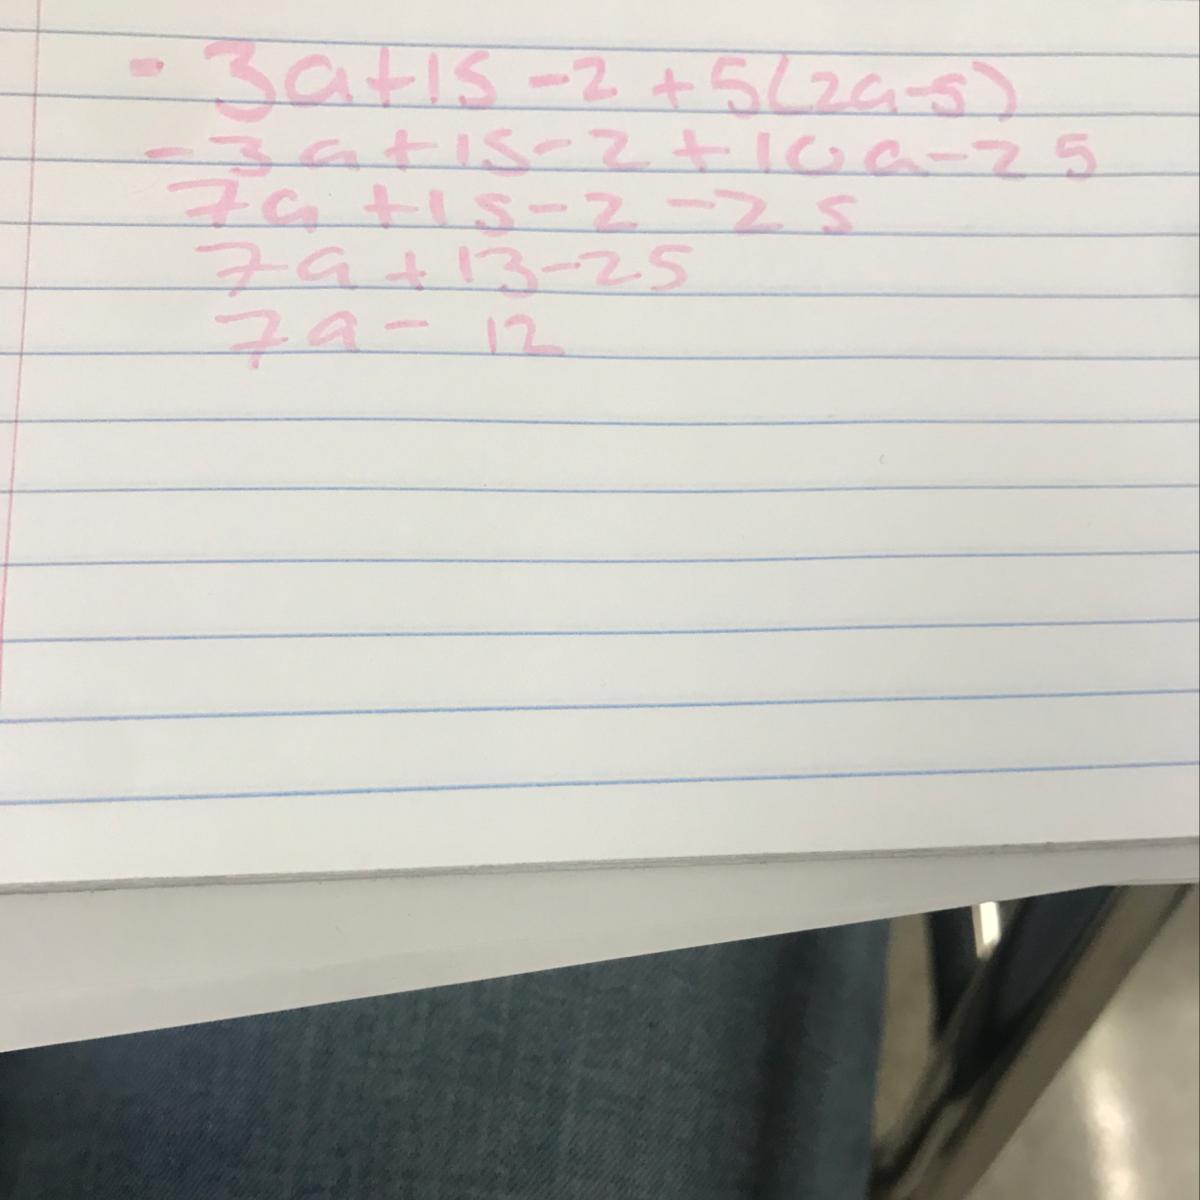 - 3a+15 -2 +5(2a-5)
-3a+15-2+10a-25
7a +15-2-25
7a + 13-25
7a - 12